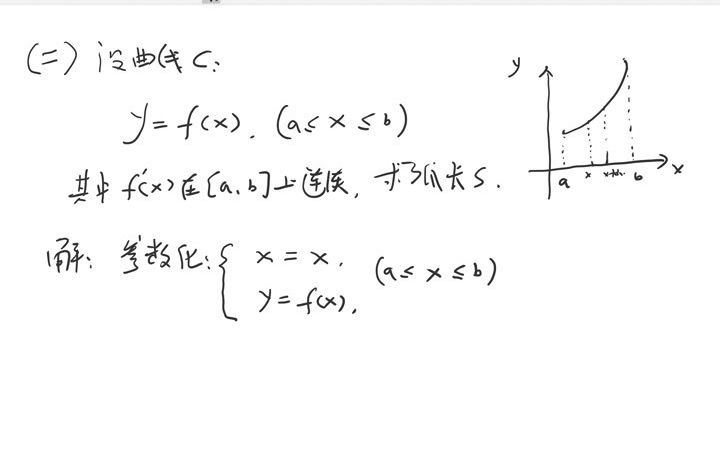 (二) 设曲线 C:
y = f(x), (a ≤ x ≤ b)
其中 f'(x) 在 [a, b] 上连续, 求弧长 S.
解: 参数化: { x = x, (a ≤ x ≤ b)
y = f(x),
y
a x x+dx b x